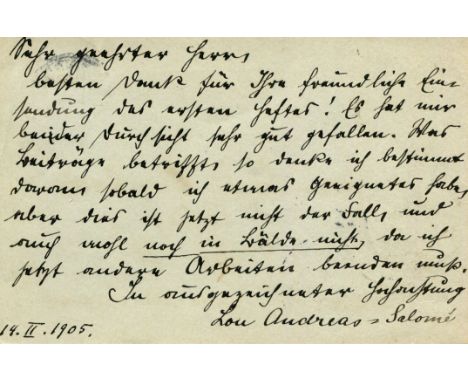 Sehr geehrter Herr,
besten Dank für Ihre freundliche Ein-
sendung des ersten Heftes! Es hat mir
bei der Durchsicht sehr gut gefallen. Was
Beiträge betrifft, so denke ich bestimmt
daran, sobald ich etwas Geeignetes habe,
aber dies ist jetzt nicht der Fall, und
auch wohl noch in Bälde nicht, da ich
jetzt andere Arbeiten beenden muß.
In ausgezeichneter Hochachtung
Lou Andreas=Salomé
14. II. 1905.